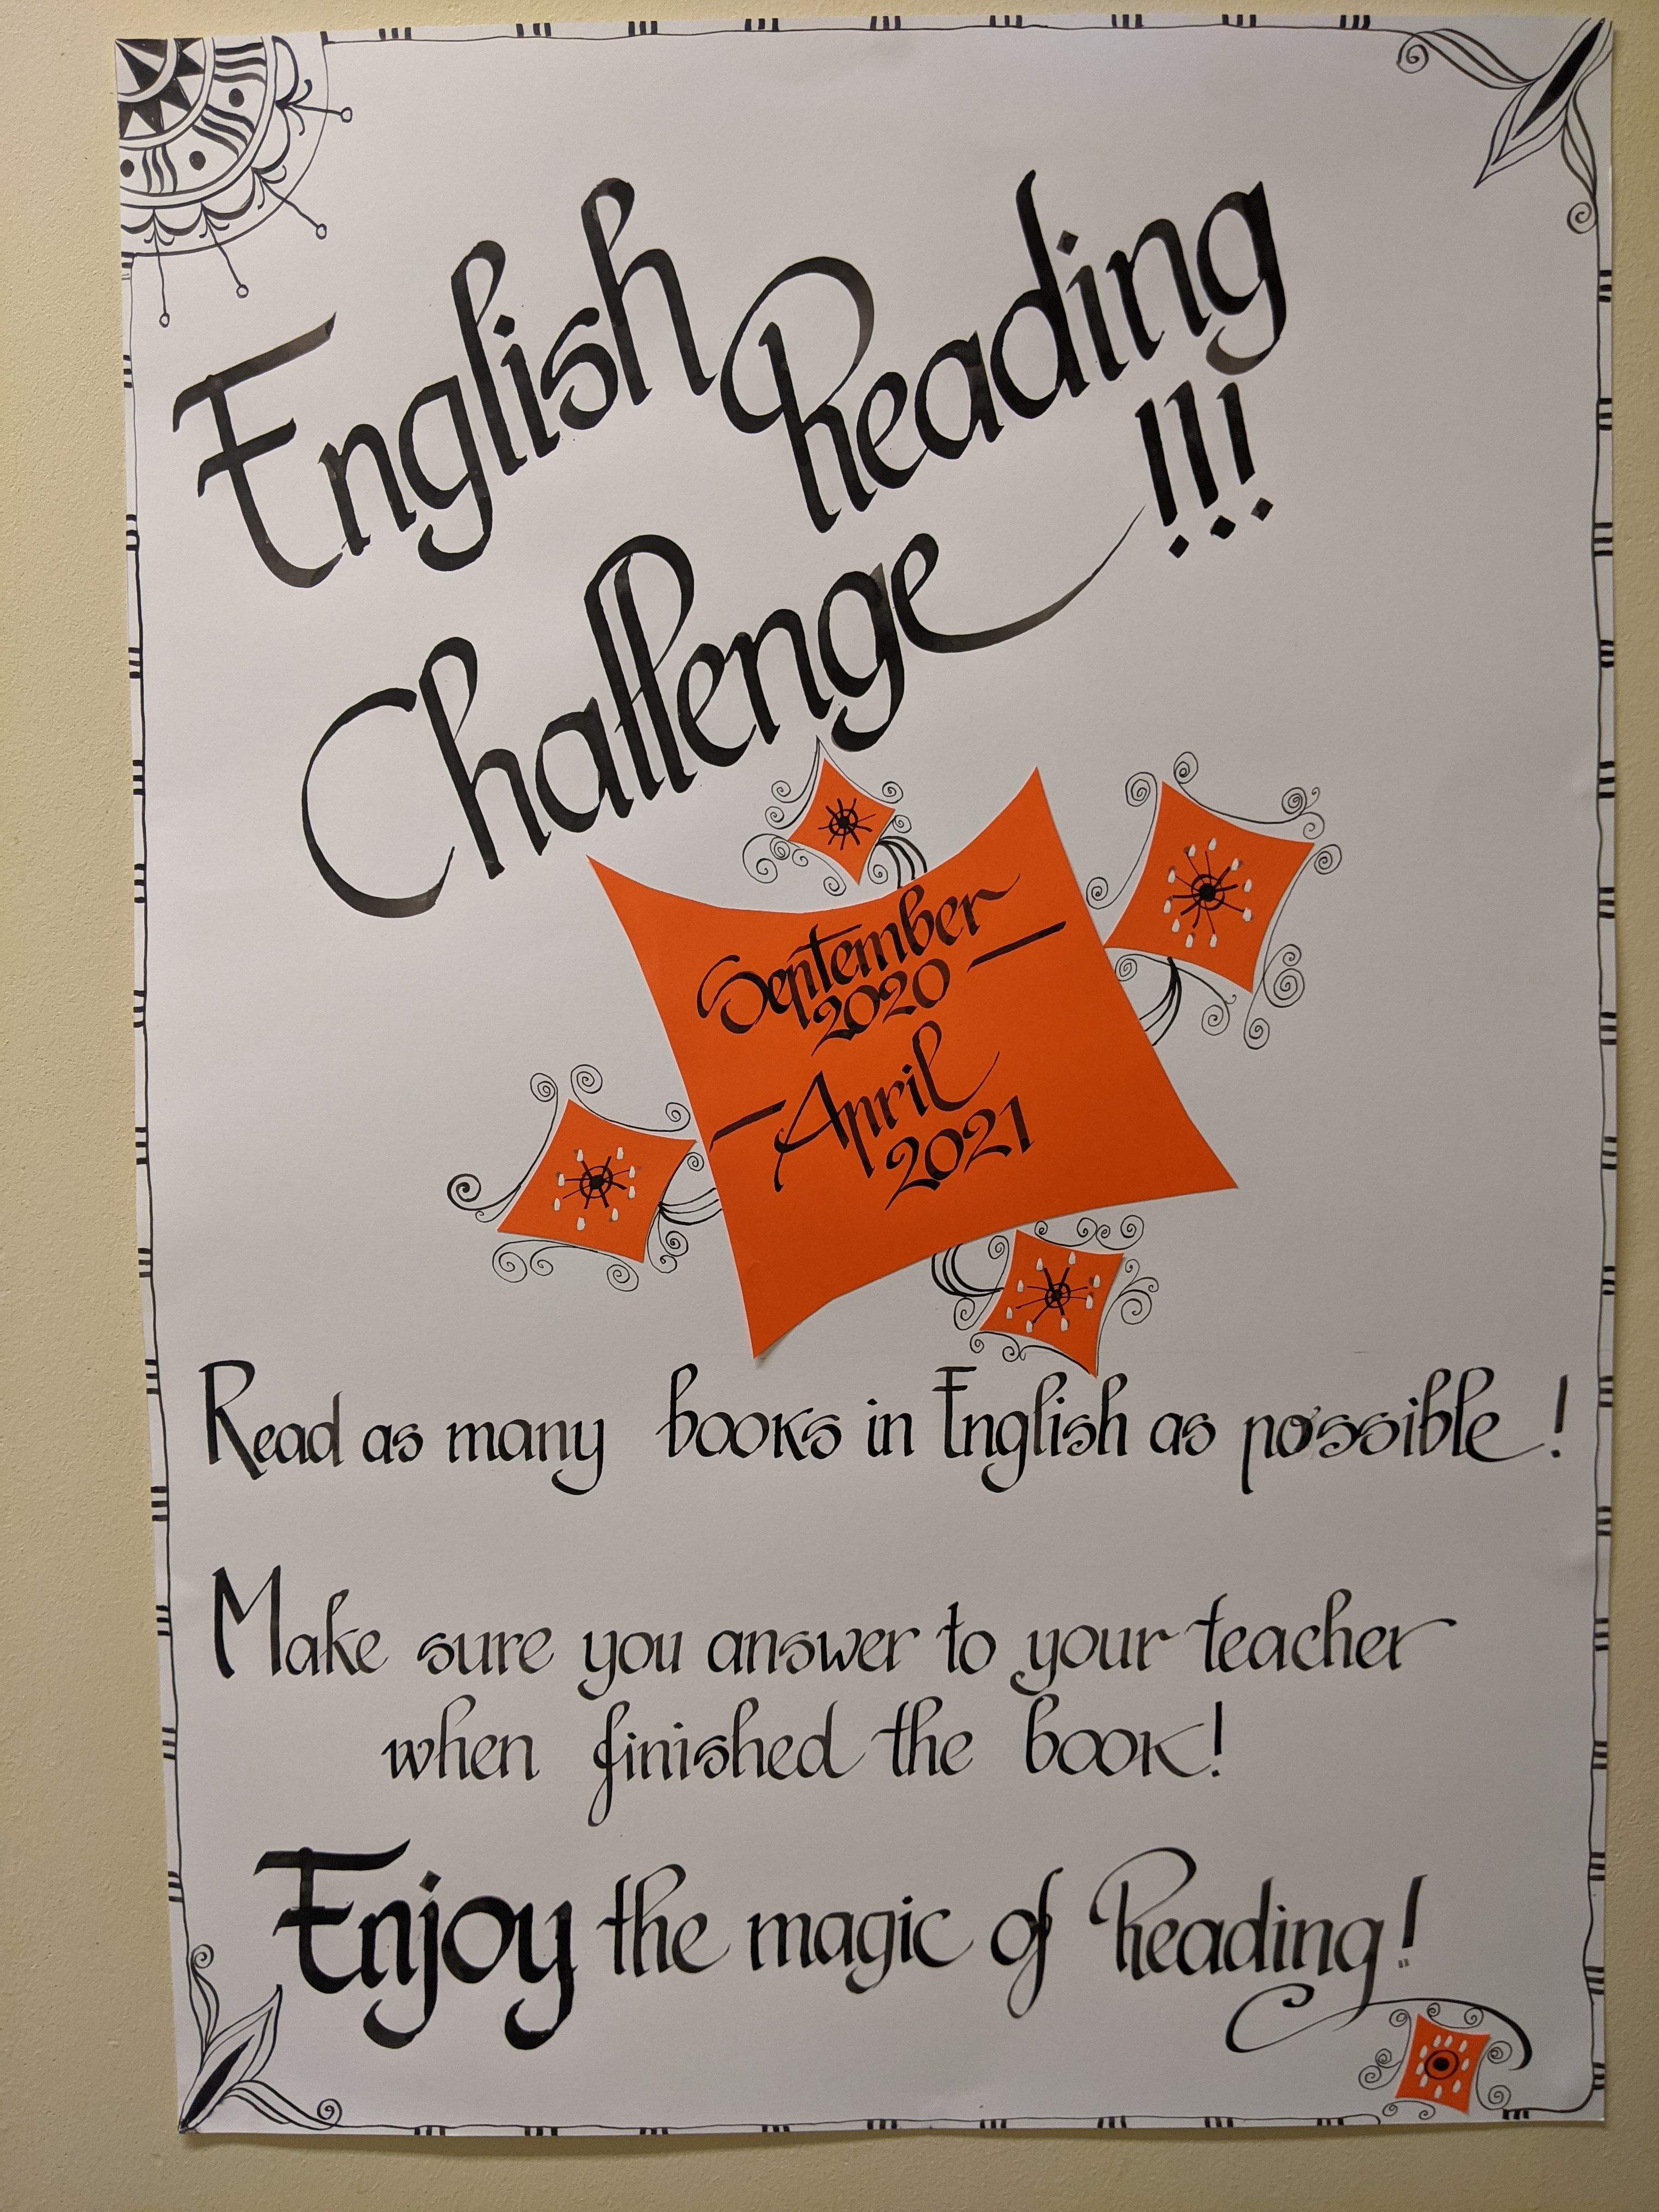 English Reading
Challenge !!!
September
2020 —
— April
2021
Read as many books in English as possible !
Make sure you answer to your teacher
when finished the book!
Enjoy the magic of Reading!